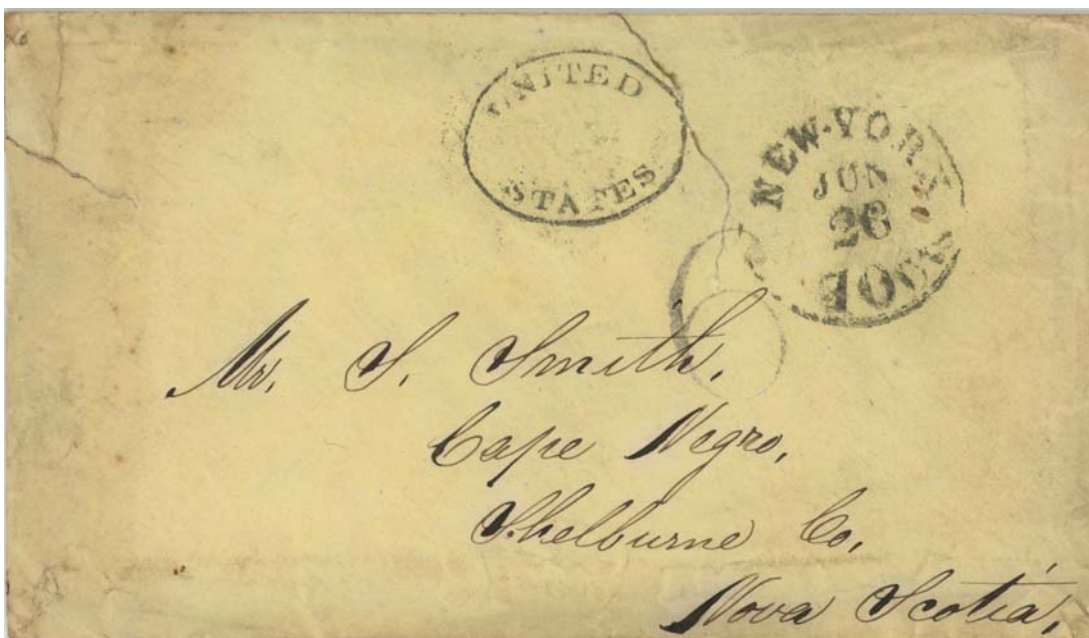 UNITED
STATES
NEW-YORK
JUN
26
6
Mr. S. Smith,
Cape Negro,
Shelburne Co,
Nova Scotia,